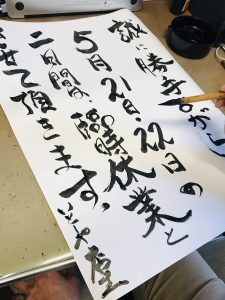 誠に勝手ながら
5月21日22日の
二日間は、臨時休業と
させて頂きます、
堂